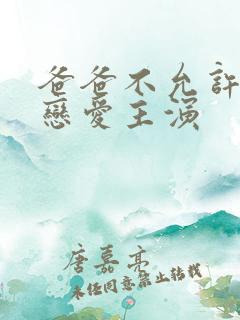 爸爸不允許
戀愛主演
唐嘉亮
未经同意禁止转载